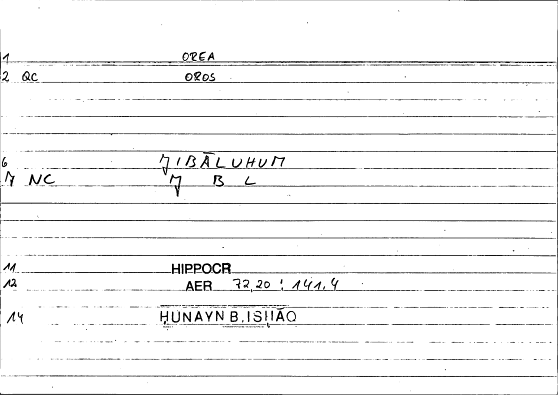 1 OREA
2 QC OROS
6 ǦIBĀLUHUM
7 NC Ǧ B L
11 HIPPOCR
12 AER 72,20 : 141,4
14 ḤUNAYN B. ISḤĀQ